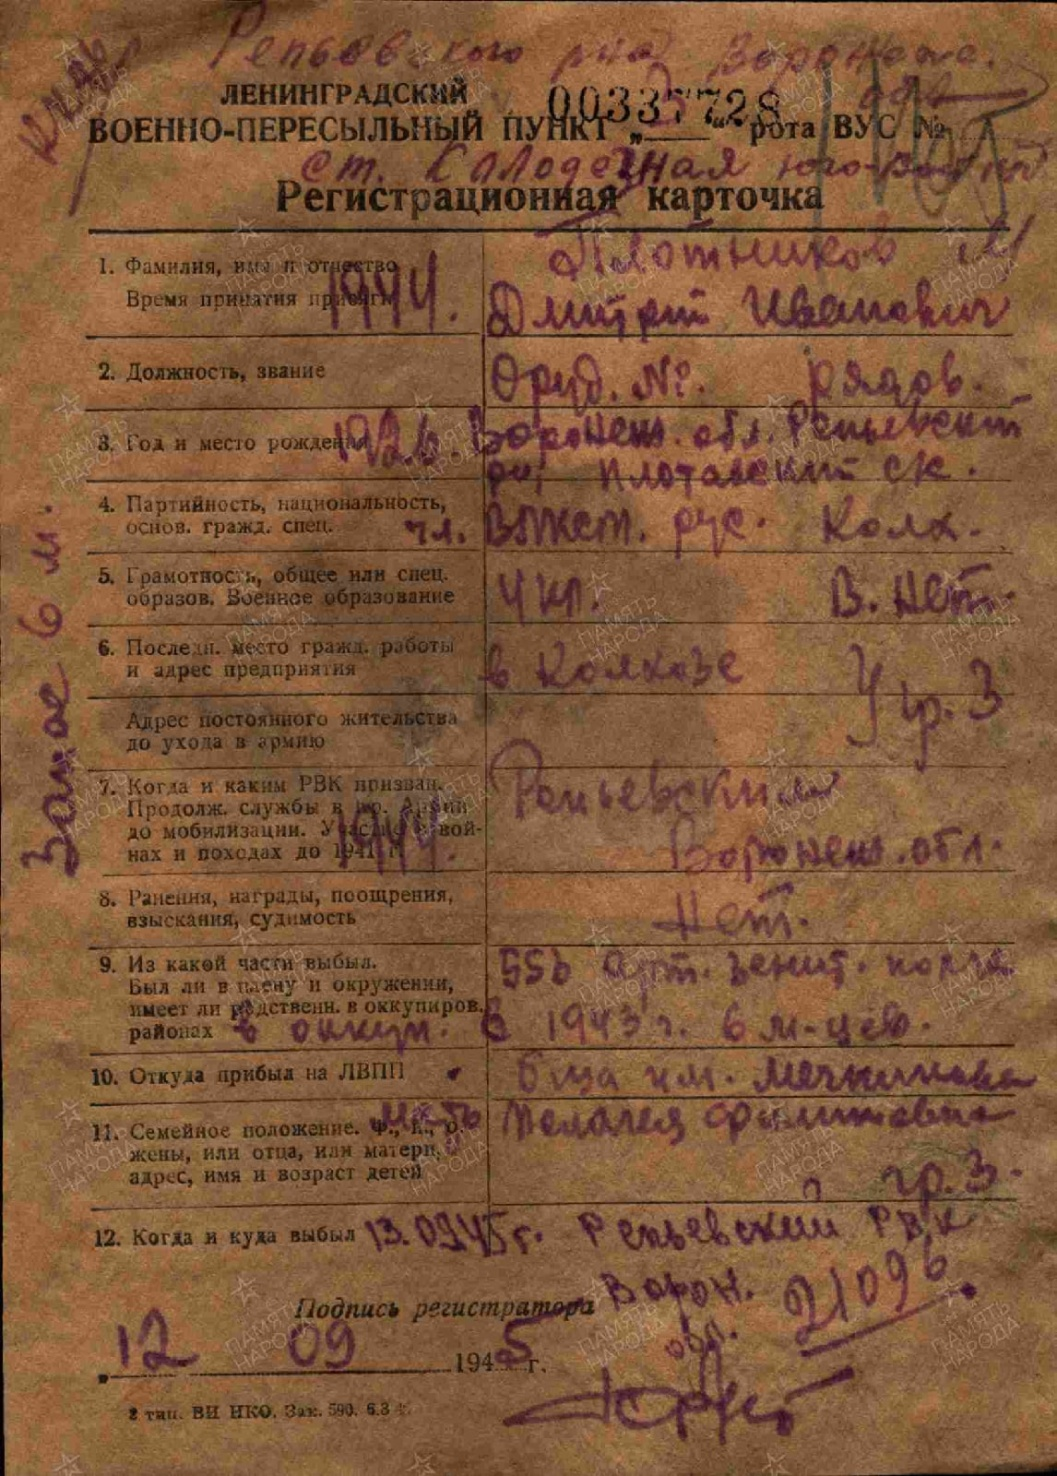 Репьевского р-на Воронеж.
обл
ЛЕНИНГРАДСКИЙ 00337728
ВОЕННО-ПЕРЕСЫЛЬНЫЙ ПУНКТ „ “ рота ВУС №
ст. Колодезная юго-
Регистрационная карточка
1. Фамилия, имя и отчество Плотников
Время принятия присяги 1944. Дмитрий Иванович
2. Должность, звание Оруд. №. рядов.
3. Год и место рождения 1926. Воронеж. обл. Репьевский
4. Партийность, национальность,
основ. гражд. спец. чл. рус. Колх.
5. Грамотность, общее или спец.
образов. Военное образование 4 кл. В. нет.
6. Последн. место гражд. работы
и адрес предприятия в Колхозе
гр. 3
Адрес постоянного жительства
до ухода в армию
7. Когда и каким РВК призван. Репьевским
Продолж. службы в кр. Армии
до мобилизации. Участие в вой-
нах и походах до 1941 г. 1944. Воронеж. обл.
8. Ранения, награды, поощрения,
взыскания, судимость Нет.
9. Из какой части выбыл. арт. зенит. полка
Был ли в плену и окружении,
имеет ли родственн. в оккупиров.
районах в оккуп. в 1943 г. 6 м-цев.
10. Откуда прибыл на ЛВПП б-ца им. Мечникова
11. Семейное положение. Ф., И., О. мать Пелагея
жены, или отца, или матери,
адрес, имя и возраст детей гр. 3.
12. Когда и куда выбыл 13.09.45 г. Репьевский РВК
Ворон.
обл.
21096
Подпись регистратора
12 09 1945 г.
2 тип. ВИ НКО. Зак. 590.
Запас 6 м.